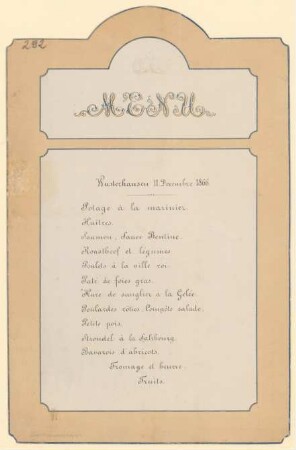 292
MENU
Wusterhausen 11 Decembre 1866
Potage à la marinier.
Huîtres.
Saumon, Sauce
Roastbeef et légumes.
Poulets à la ville roi.
Pate de foies gras.
Hure de sanglier a la Gelée.
Poulardes rôties. Compôts salade.
Petits pois.
à la Salzbourg.
Bavarois d'abricots.
Fromage et beurre.
Fruits.